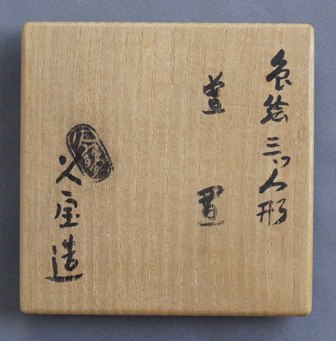 色絵三ツ人形
蓋置
造